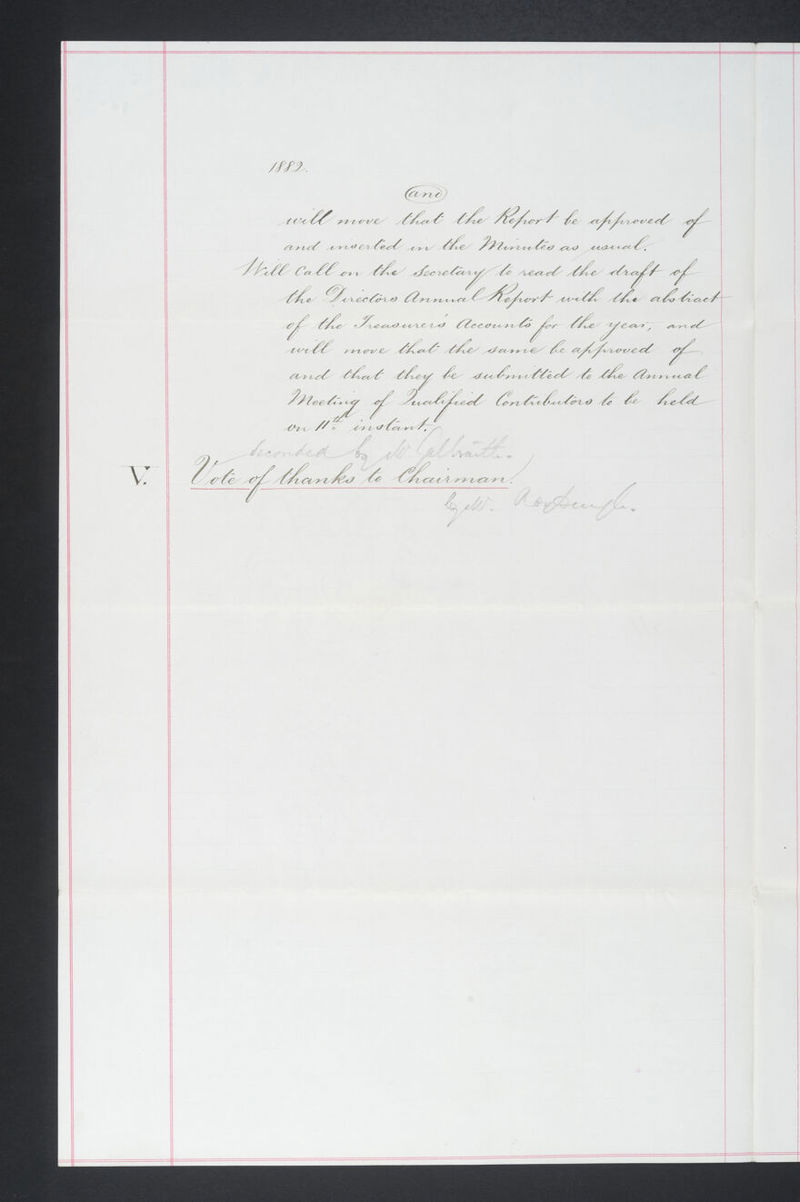 1882.
and
will move that the Report be approved of
and inserted in the Minutes as usual.
Will Call on the Secretary to read the draft of
the Directors Annual Report with the abstract
of the Treasurer's Accounts for the year, and
will move that the same be approved of
and that they be submitted to the Annual
Meeting of Qualified Contributors to be held
on 11th instant.
Seconded by Mr. Galbraith.
V. Vote of thanks to Chairman.
by Mr.